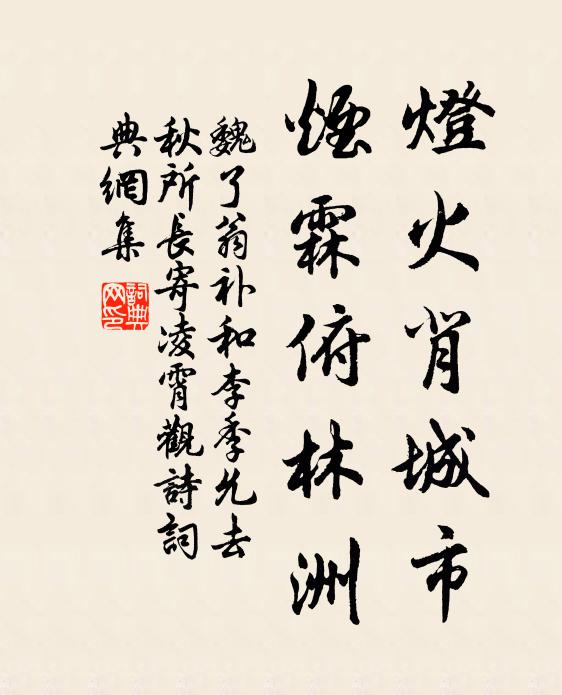 燈火肖城市
煙霖俯林洲
魏了翁补和李季允去
秋所長寄凌霄觀詩詞
典網集
詞典
网印